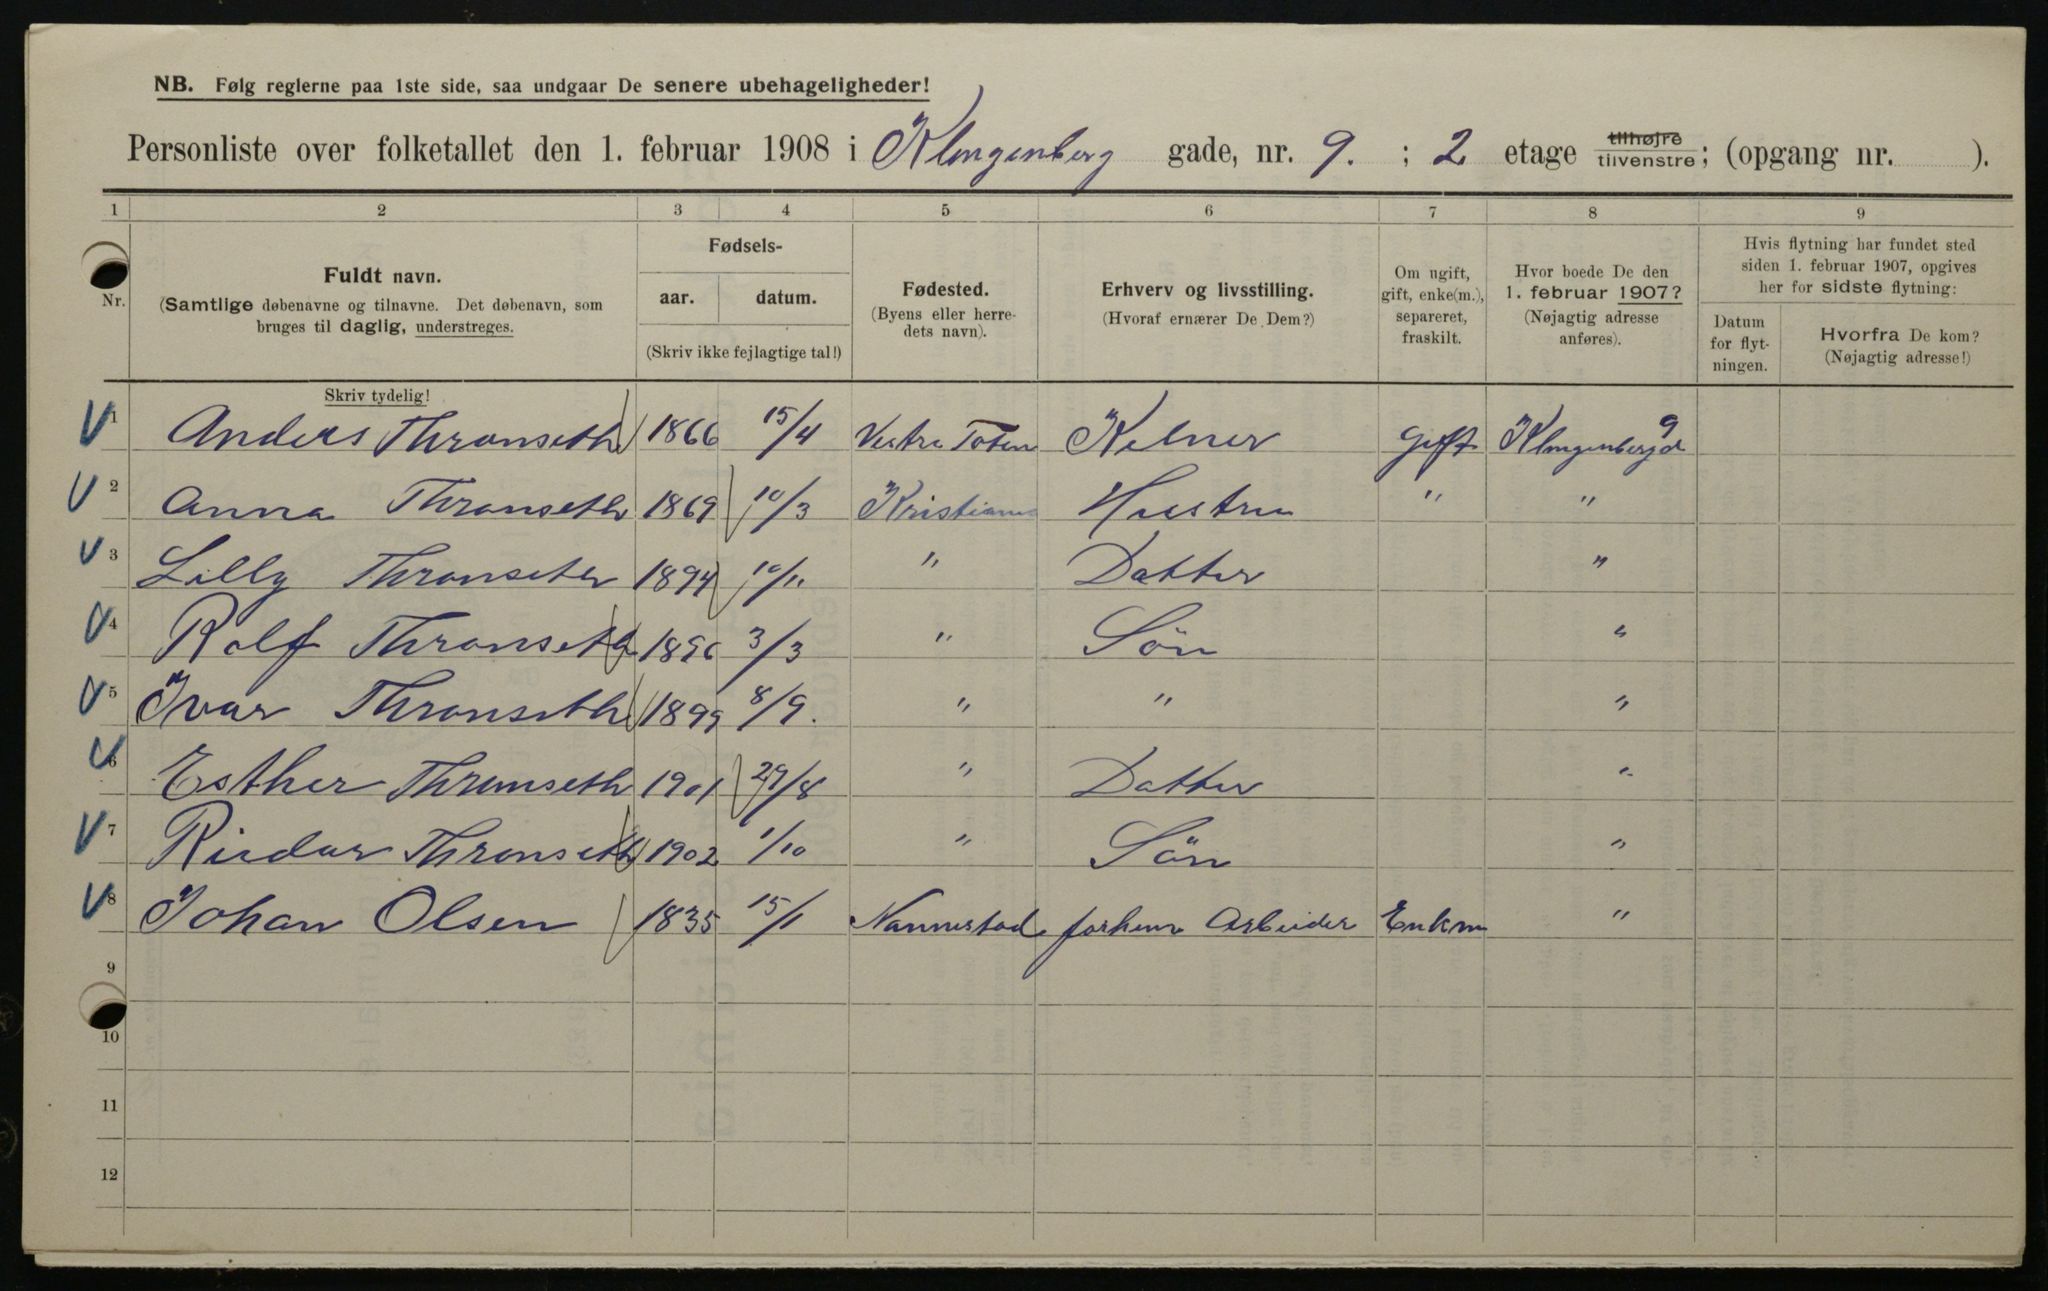 NB. Følg reglerne paa 1ste side, saa undgaar De senere ubehageligheder!
Personliste over folketallet den 1. februar 1908 i Klingenberg gade, nr. 9. ; 2 etage tilhøjre tilvenstre; (opgang nr. ).
1 2 3 4 5 6 7 8 9
Nr.
Fuldt navn.
(Samtlige døbenavne og tilnavne. Det døbenavn, som
bruges til daglig, understreges.
Fødsels-
aar. datum.
(Skriv ikke fejlagtige tal!)
Fødested.
(Byens eller herre-
dets navn).
Erhverv og livsstilling.
(Hvoraf ernærer De Dem?)
Om ugift,
gift, enke(m.),
separeret,
fraskilt.
Hvor boede De den
1. februar 1907?
(Nøjagtig adresse
anføres).
Hvis flytning har fundet sted
siden 1. februar 1907, opgives
her for sidste flytning:
Datum
for flyt-
ningen.
Hvorfra De kom?
(Nøjagtig adresse!)
Skriv tydelig!
1 Anders Thronseth 1866 15/4 Vestre Toten Kelner Gift Klingenbergd 9
2 Anna Thronseth 1869 10/3 Kristiania Hustru " "
3 Lilly Thronseth 1894 10/11 " Datter "
4 Rolf Thronseth 1896 3/3 " Sön "
5 Ivar Thronseth 1899 8/9. " " "
6 Esther Thronseth 1901 29/8 " Datter "
7 Reidar Thronseth 1902 1/10 " Sön "
8 Johan Olsen 1835 15/1 Nannestad forhenv Arbeider Enkm "
9
10
11
12